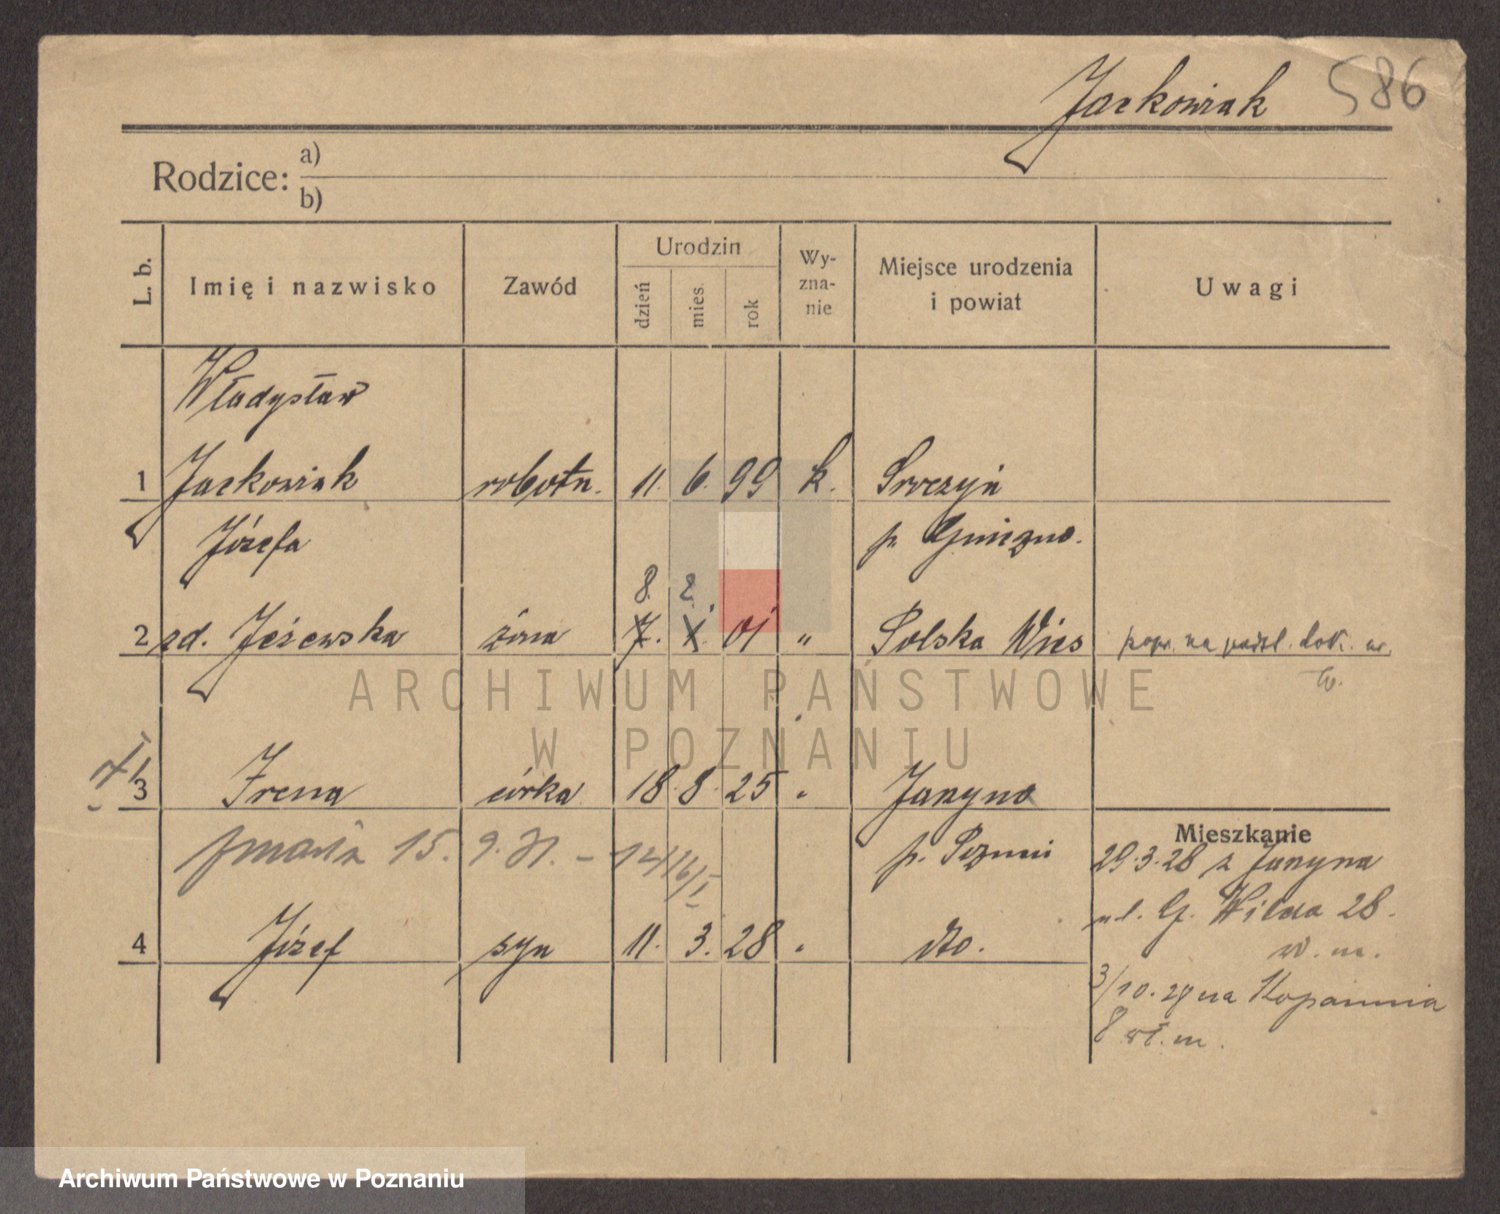 Jackowiak 586
Rodzice: a)
b)
L. b. Imię i nazwisko Zawód Urodzin dzień mies. rok Wy-zna-nie Miejsce urodzenia i powiat Uwagi
Władysław
1 Jackowiak robotn. 11. 6. 99 k.
Józefa p. Gniezno.
8. 2.
2 zd. Jeżewska żona 7. X. 01 " Polska Wieś popr. na podst. dok.
ARCHIWUM PAŃSTWOWE
W POZNANIU
3 Irena córka 18. 8. 25 "
Mieszkanie
zmarła 15. 9. 31. - p. Poznań 29.3.28 z
4 Józef syn 11. 3. 28 " dto. ul. G. Wilda 28.
w. m.
3/10. 28 na Kopannia
8 wł. m.
Archiwum Państwowe w Poznaniu